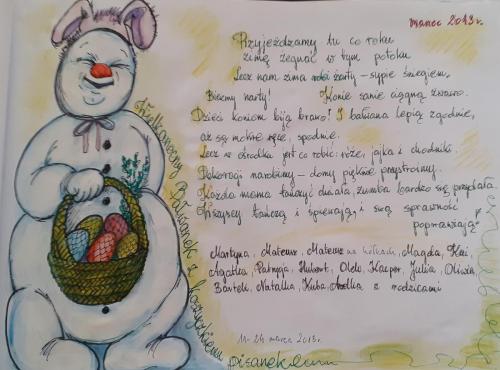 marzec 2013r.
Przyjeżdżamy tu co roku
zimę żegnać w tym potoku
Lecz nam zima robi żarty - sypie śniegiem,
Bierzemy narty! Konie sanie ciągną żwawo.
Dzieci koniom biją brawo! I bałwana lepią zgodnie,
aż są mokre ręce, spodnie.
Lecz w ośrodku jest co robić: róże, jajka i chodniki.
Dekoracji narobimy - domy pięknie przystroimy.
Każda mama tańczyć chciała, zumba bardzo się przydała
Wszyscy tańczą i śpiewają, i swą sprawność
poprawiają?
Martyna, Mateusz, Mateusz na kółkach, Magda, Kai,
Agatka Patrycja, Hubert, Olek, Kacper, Julia, Oliwia,
Bartek, Natalka, Kuba, z rodzicami
11-24 marca 2013r.
Wielkanocny Bałwanek z koszyczkiem
pisankowym